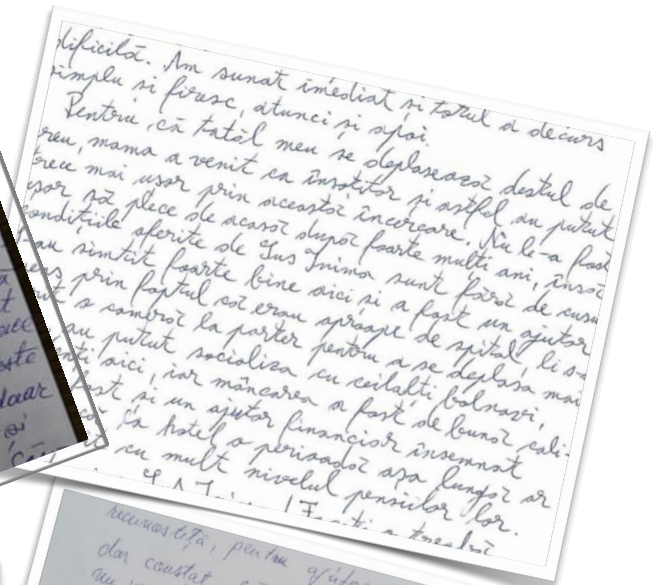 dificilă. Am sunat imediat și totul a decurs
simplu si firesc, atunci și apoi.
Pentru că tatăl meu se deplasează destul de
greu, mama a venit ca însoțitor și astfel au putut
trece mai ușor prin această încercare. Nu le-a fost
ușor să plece de acasă după foarte mulți ani, însă
condițiile oferite de Sus Inima sunt fără de cusur
au simțit foarte bine aici si a fost un ajutor
prin faptul că erau aproape de spital, li s-a
o cameră la parter pentru a se deplasa mai
au putut socializa cu ceilalți bolnavi,
aici, iar mâncarea a fost de bună cali-
fost si un ajutor financiar însemnat
la hotel o perioadă așa lungă ar
cu mult nivelul pensiilor lor.
Inima
recunoștiță, pentru
dar constat
au
ace
este
doar
și